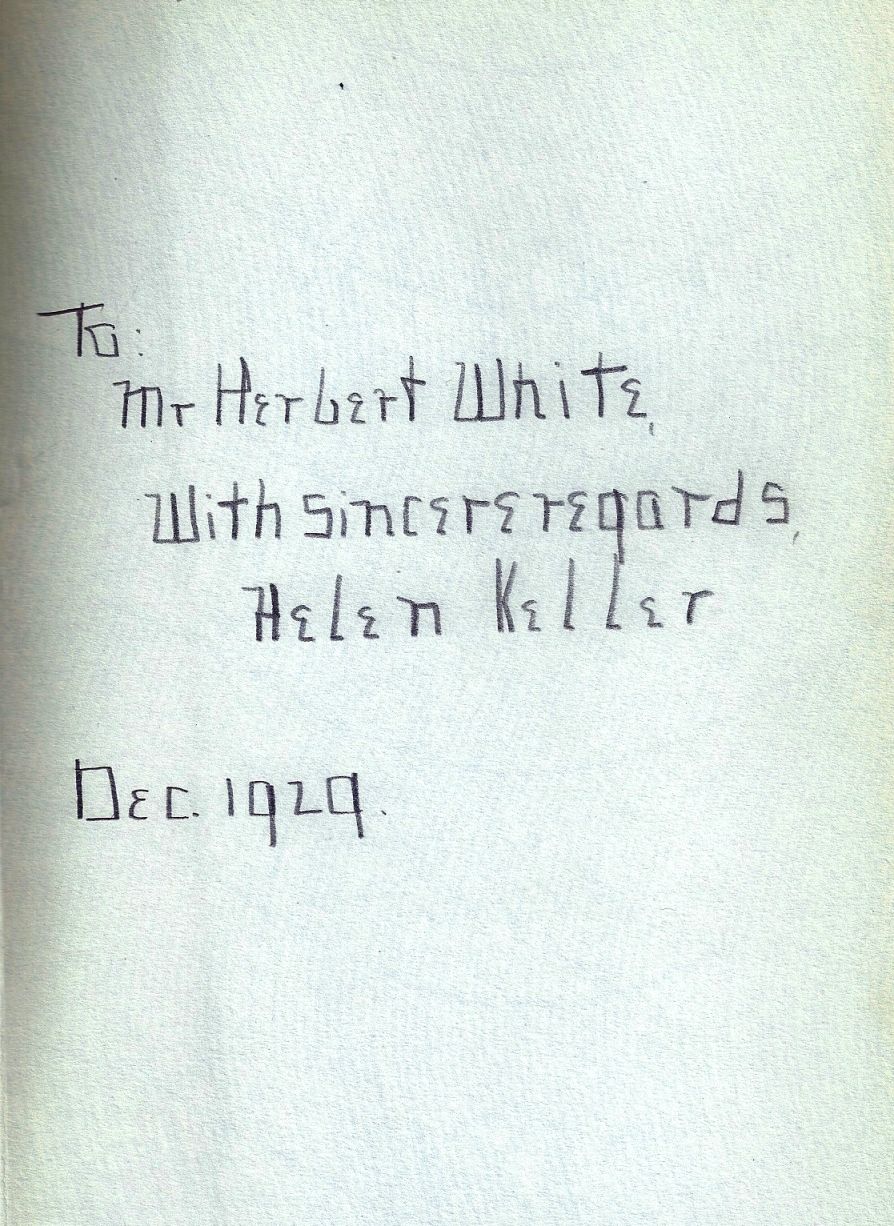 To:
Mr Herbert White,
With sincere regards,
Helen Keller
Dec. 1929.